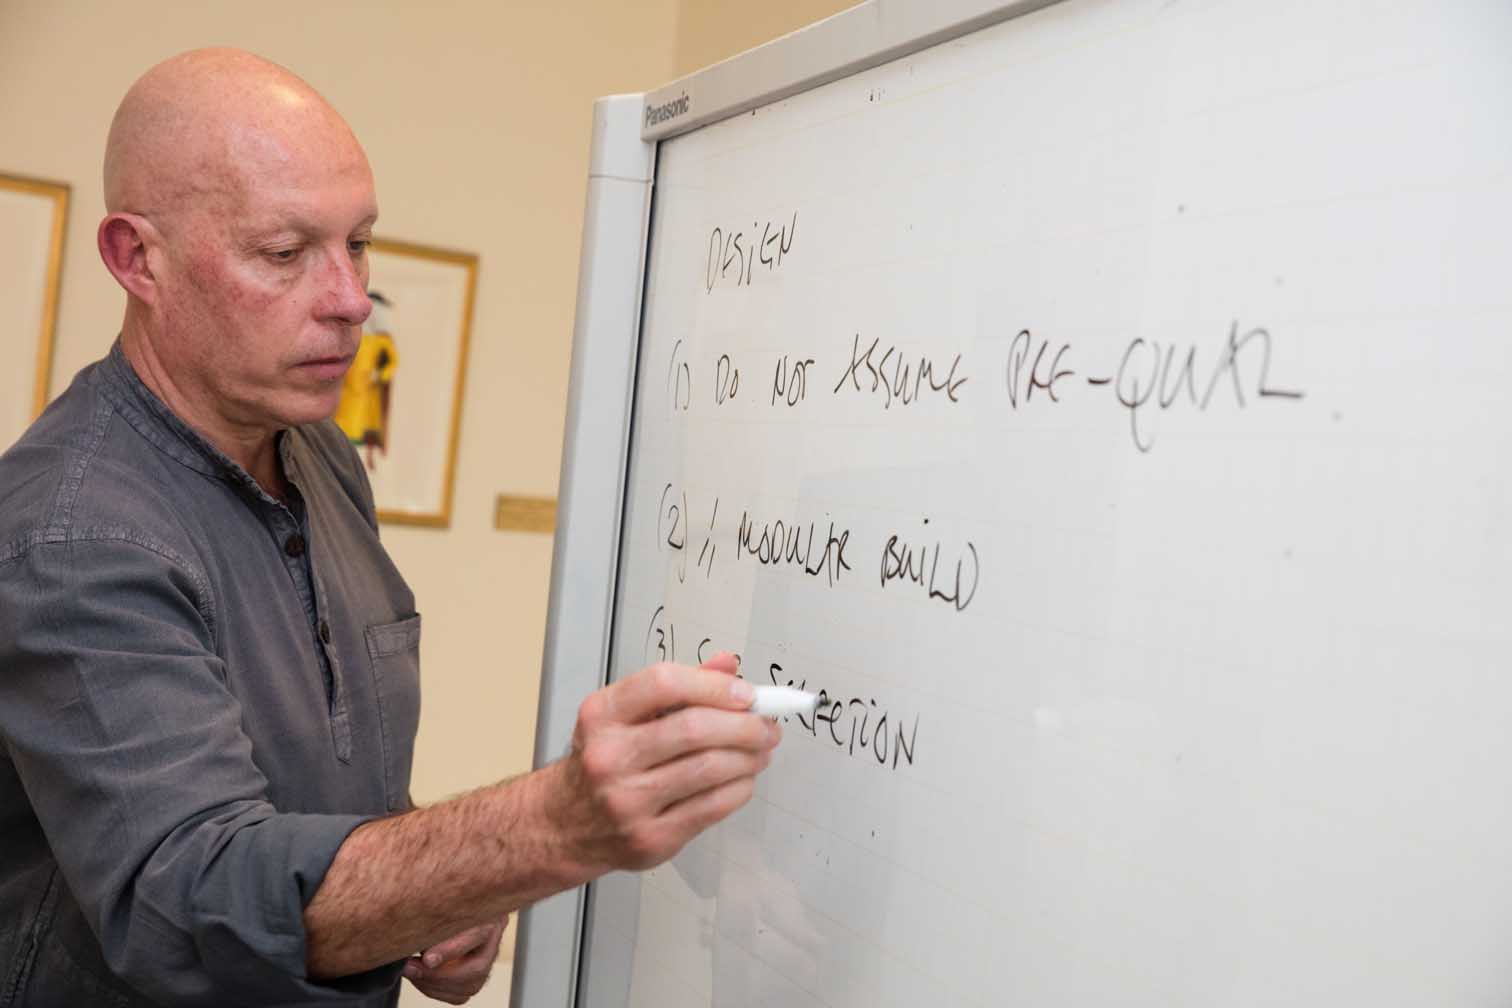 Panasonic
DESiGN
(1) Do NOT ASSUME PRE-QUAL
(2) // MODULAR BUiLD
(3) SELECTiON